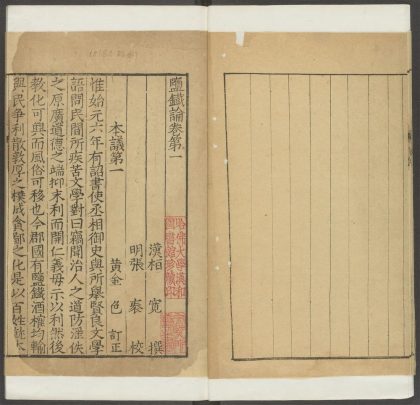 鹽鐵論卷第一
漢桓 寬 撰
明張 𠅤 校
黃金 色 訂正
本議第一
惟始元六年有詔書使丞相御史與所舉賢良文學
語問民間所疾苦文學對曰竊聞治人之道防淫佚
之原廣道德之端抑末利而開仁義毋示以利然後
教化可興而風俗可移也今郡國有鹽鐵酒榷均輸
與民爭利散敦厚之樸成貪鄙之化是以百姓就本
哈佛大學漢和
圖書館珍藏印